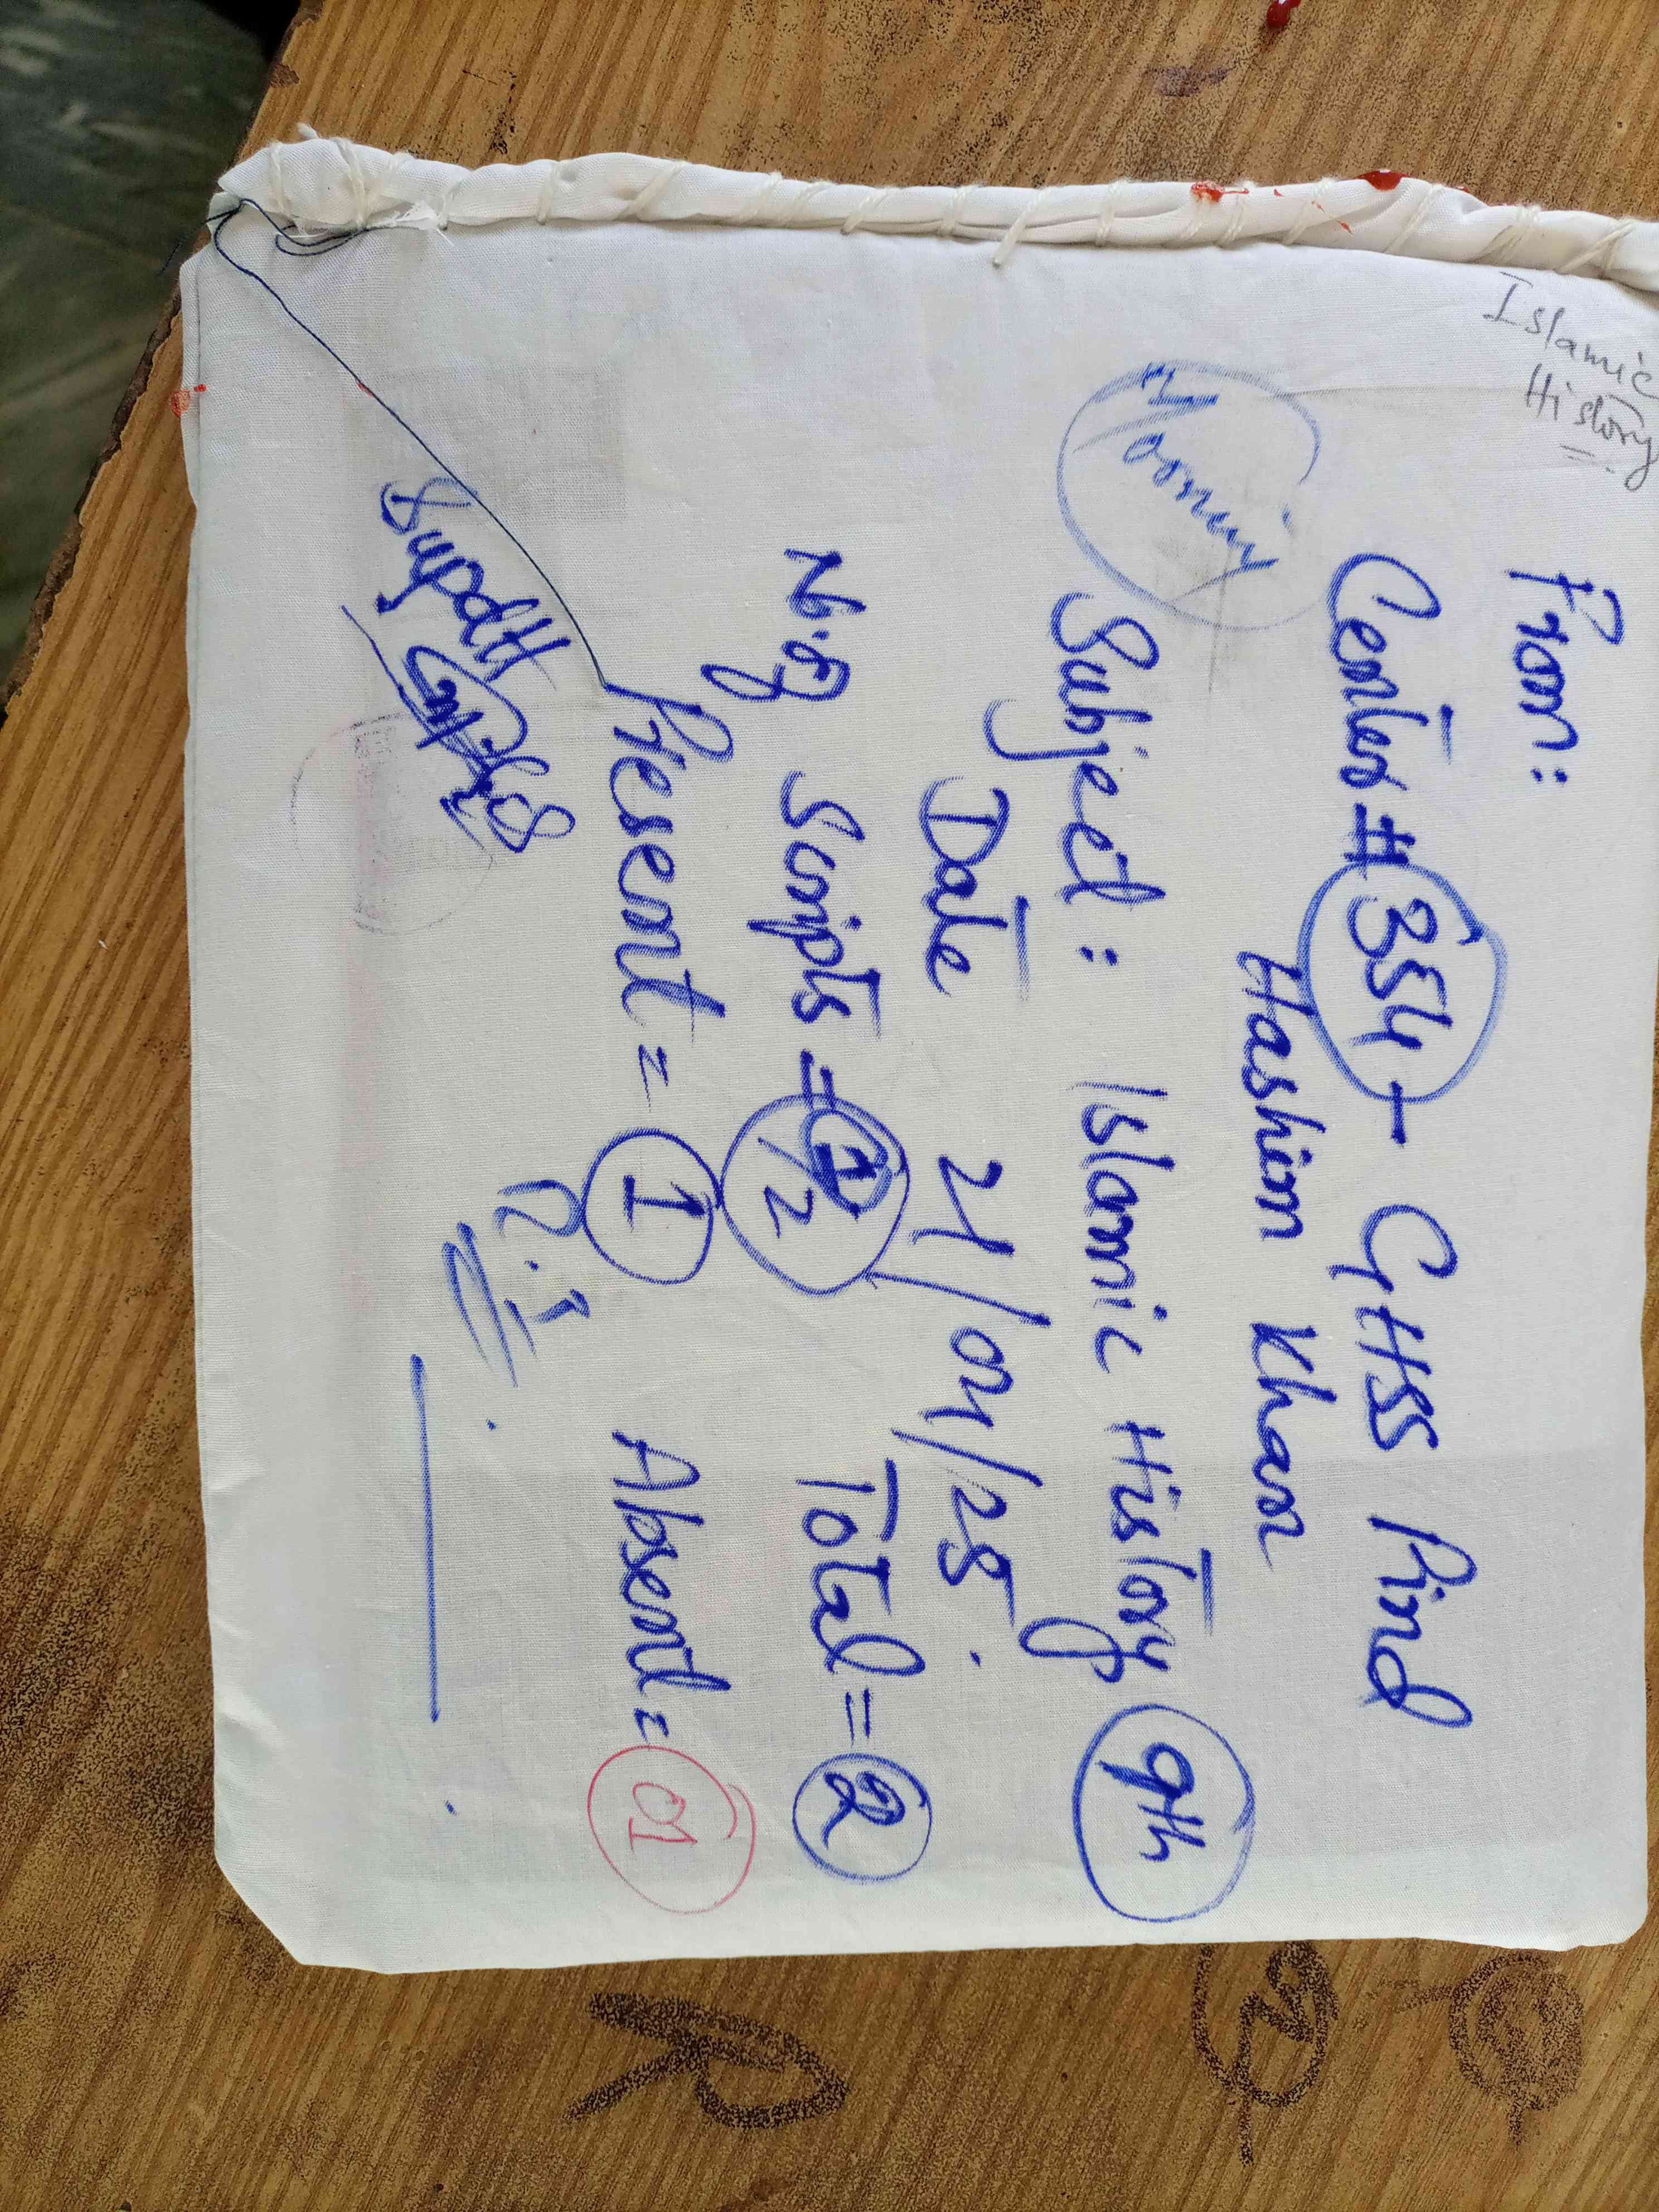 Islamic
History
From:
Center # 354 - GHSS Pind
Hashim Khan
Morning
Subject: Islamic History 9th
Date 21/04/25.
No. of Scripts = 1/2 Total = 2
Present = 1 Absent = 01
Supdtt
R.I
R